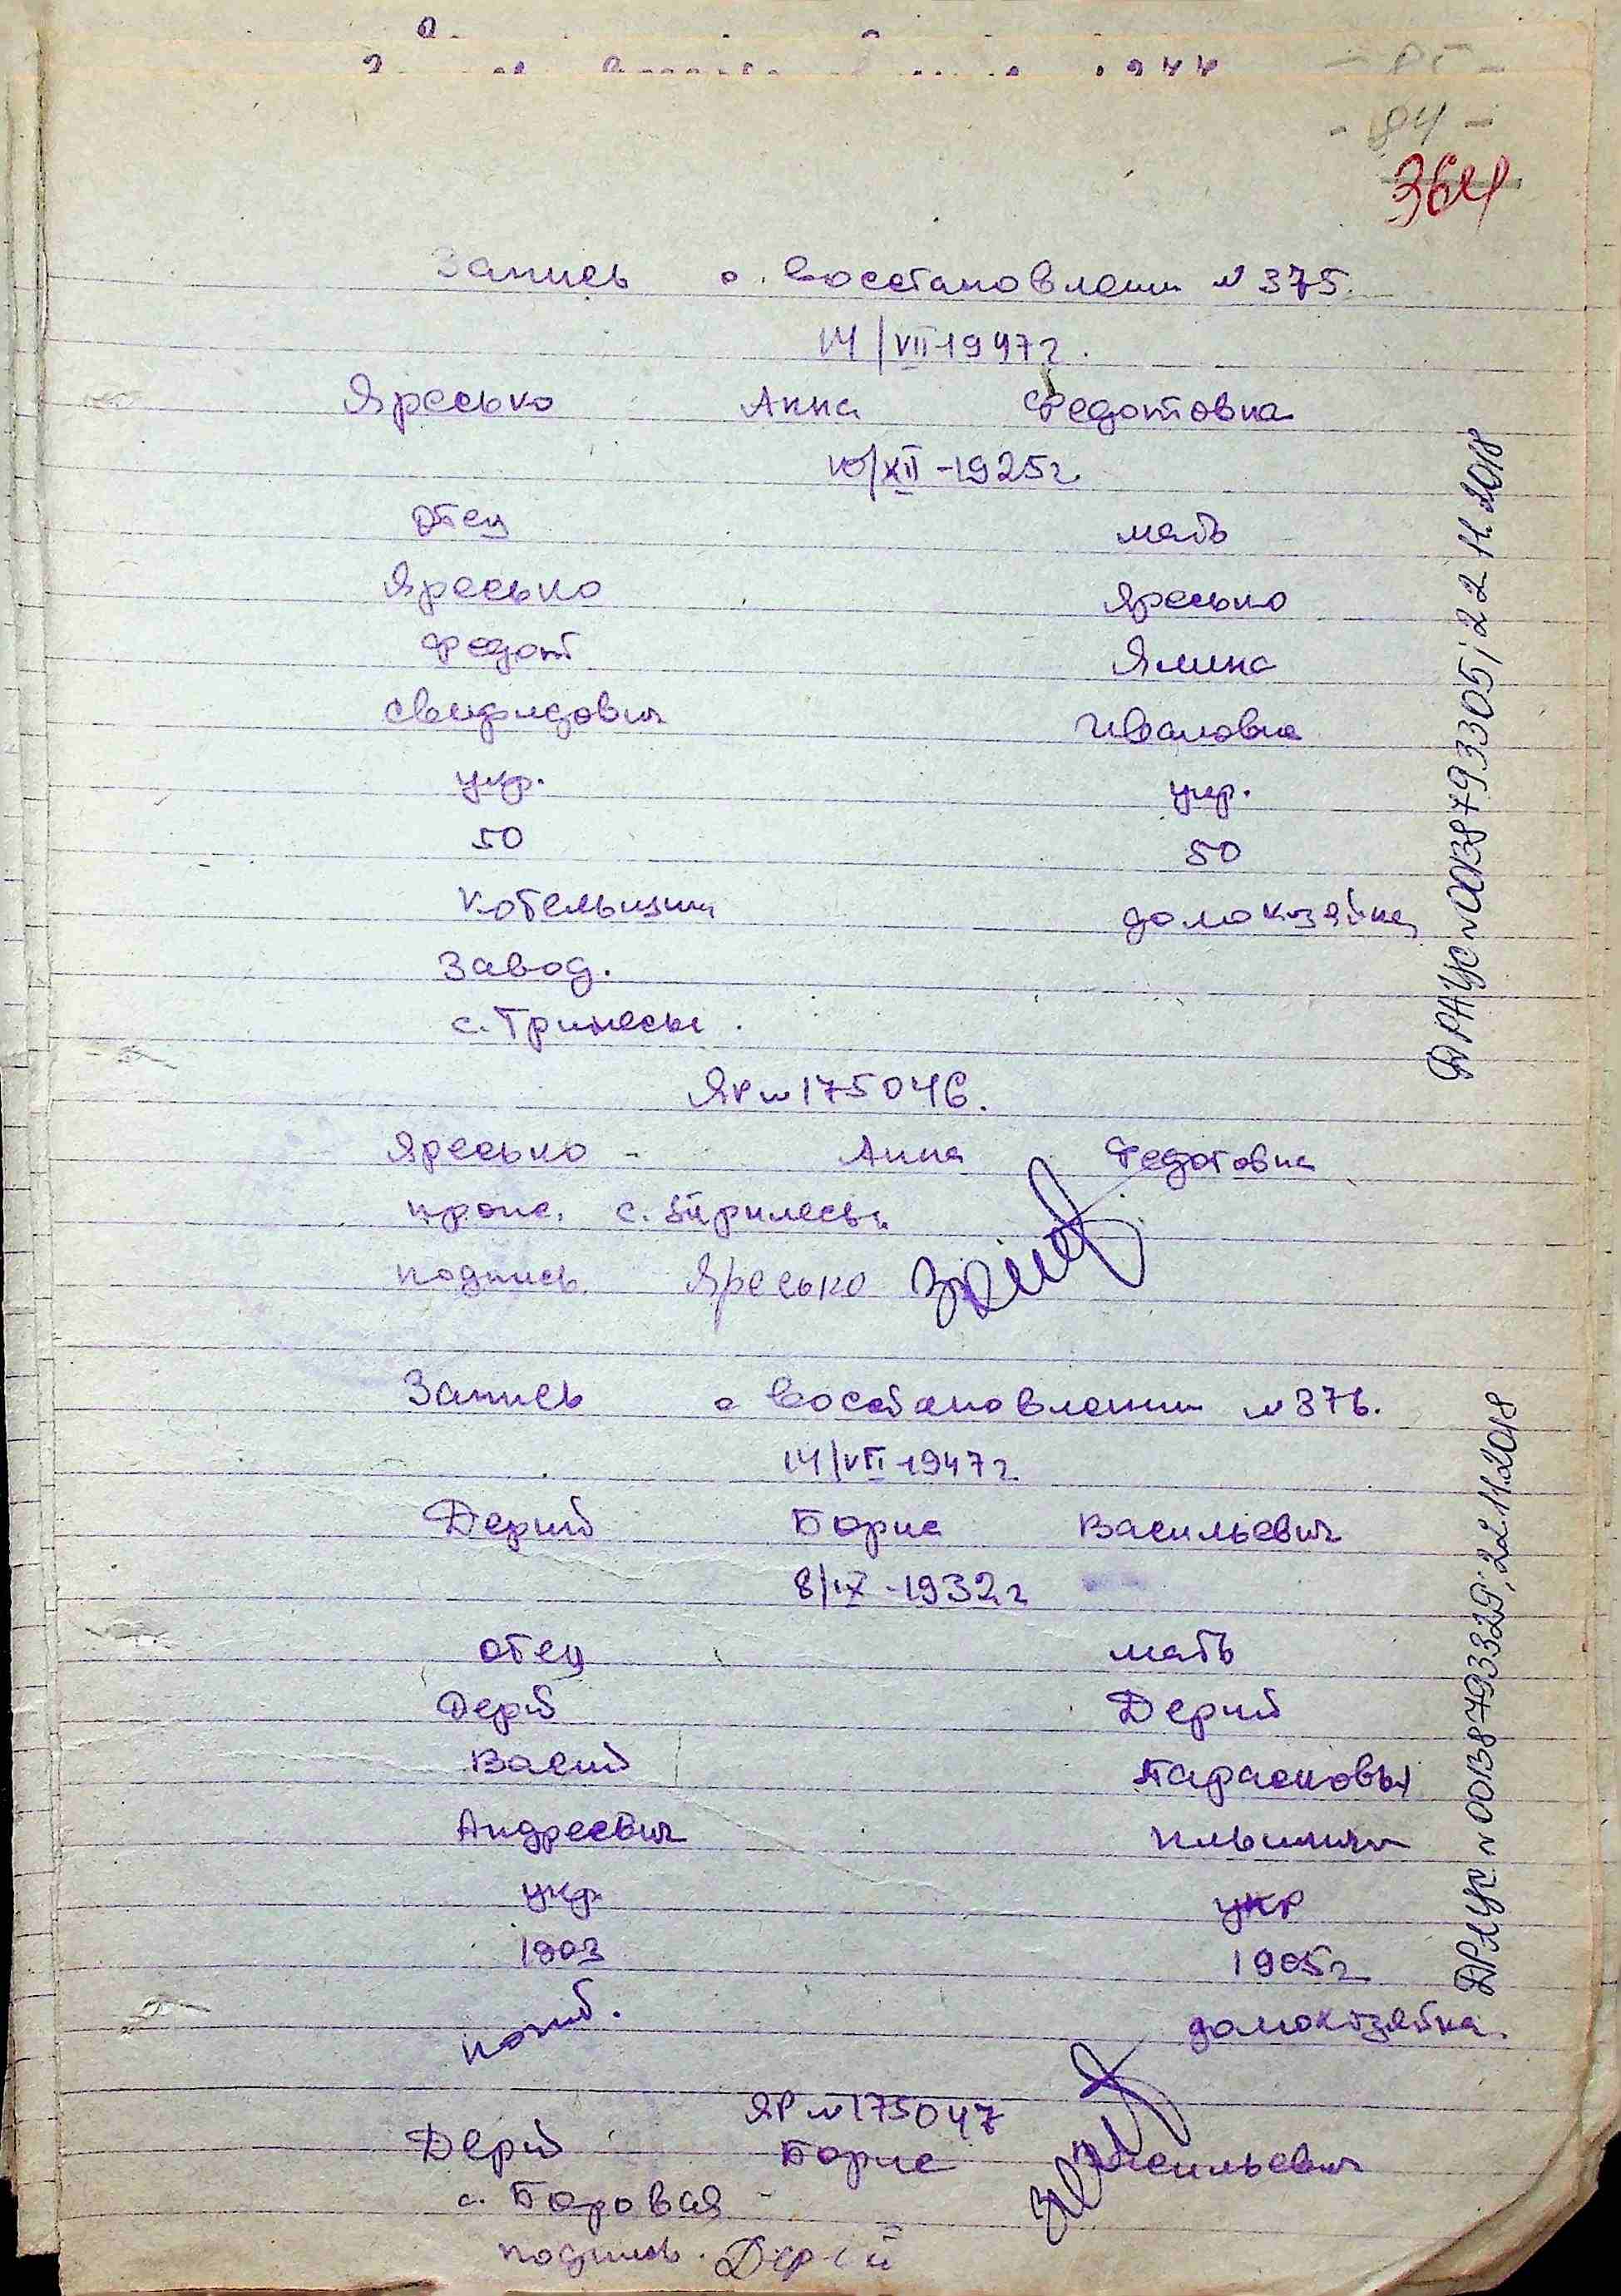 - 84 -
364
Запись о восстановлении № 375.
14/VII-1947г.
Яресько Анна Федотовна
10/XII-1925г.
Отец мать
Яресько Яресько
Федот
Свиридович Ивановна
укр. укр.
50 50
домохозяйка
завод.
ЯР № 175046.
Яресько - Анна Федотовна
подпись. Яресько
Запись о востановлении № 376.
14/VII-1947г
Дерий Борис Васильевич
8/IX-1932г
отец мать
Дерий Дерий
Васий
Андреевич
укр. укр
1903 1905г
домохозяйка.
ЯР № 175047
Дерий Борис Васильевич
с. Боровая -
подпись. Дерий
ДРАЦС № 00138793305; 22.11.2018
ДРАЦС № 00138793329; 22.11.2018